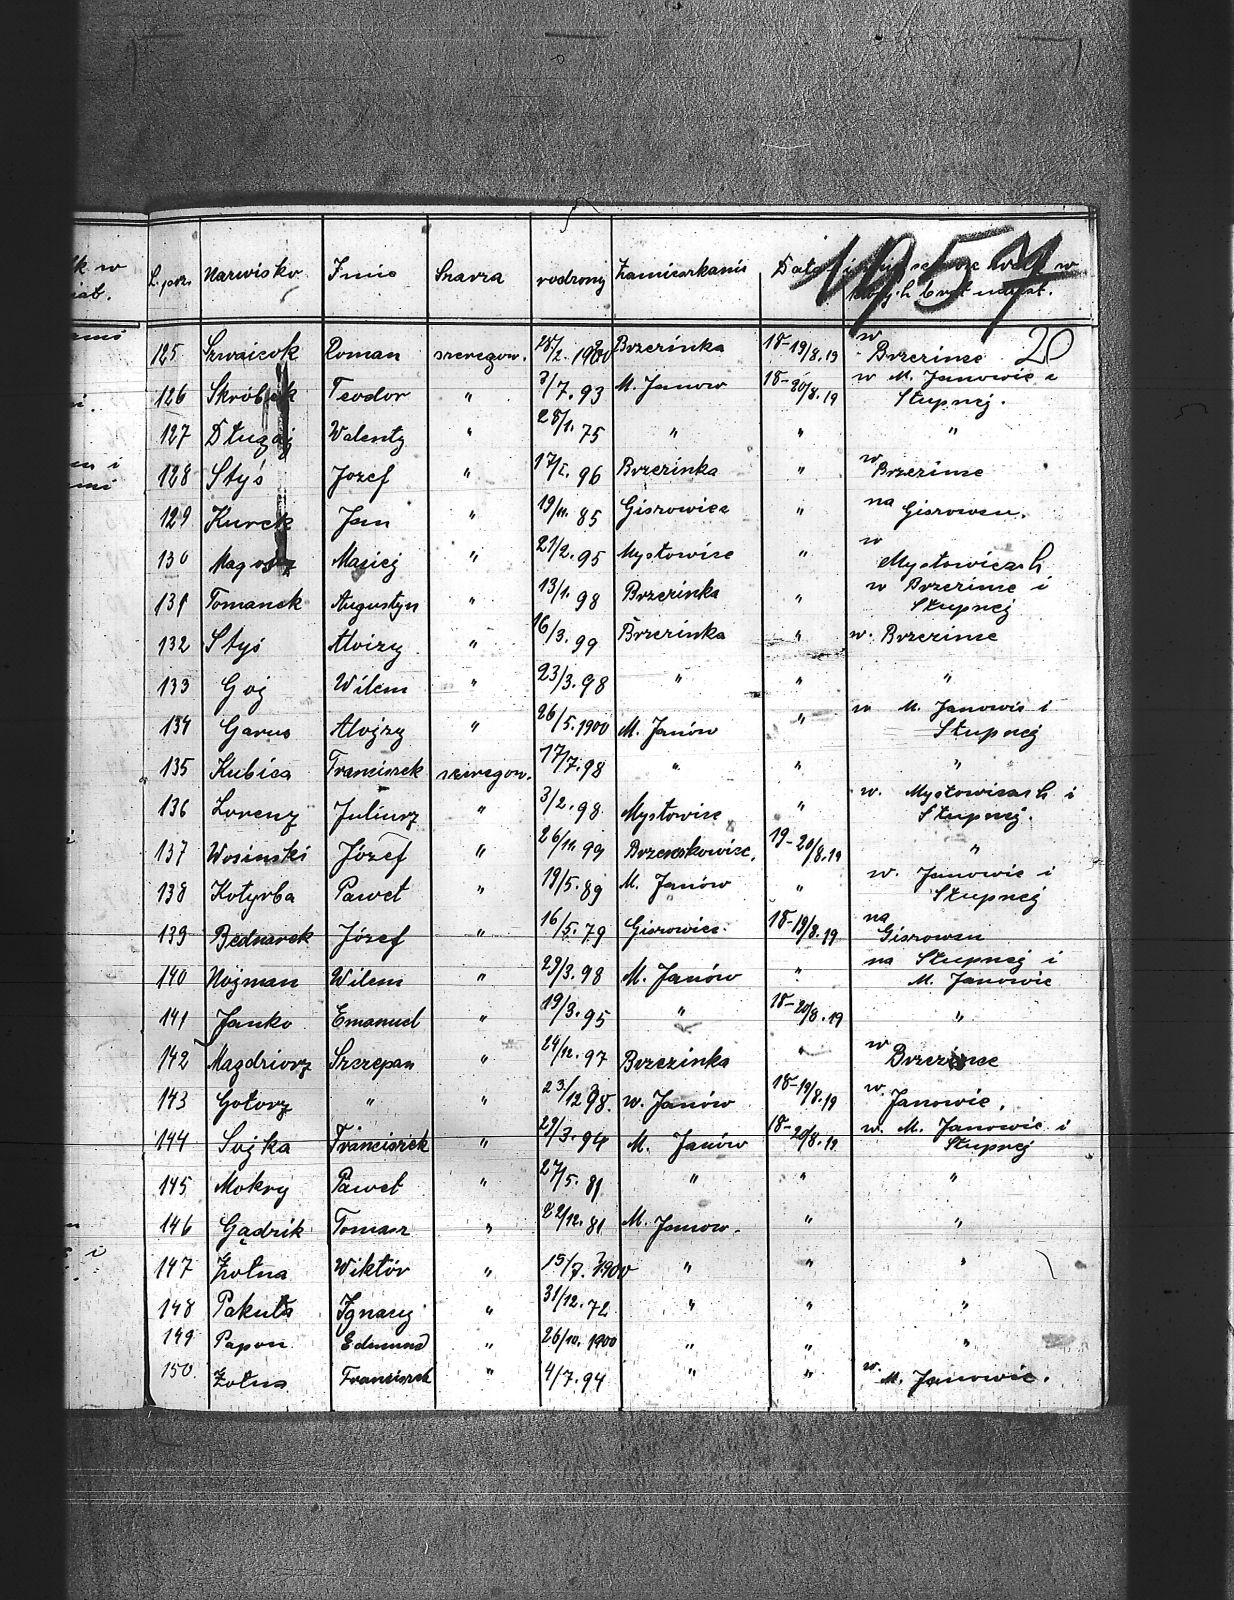 L. porz. Nazwisko Imie Szarza rodzony Zamieszkanie Data w
których brat udział.
1957
20
125 Szwaicok Roman szeregow. 28/2. 1900 Brzezinka 18-19/8.19 w Brzezince
126 Teodor " 3/7. 93 M. Janow 18-20/8.19 w M. Janowie i Słupnej.
127 Długaj Walenty " 28/1. 75 " " "
128 Styś Jozef " 17/1. 96 Brzezinka " w Brzezince
129 Kurek Jan " 19/11. 85 Giszowiec " na Giszowcu.
130 Maciej " 21/2. 95 Mysłowice " w Mysłowicach
131 Tomanek Augustyn " 13/1. 98 Brzezinka " w Brzezince i Słupnej
132 Styś Alojzy " 16/3. 99 Brzezinka " w. Brzezince
133 Goj Wilem " 23/3. 98 " " "
134 Garus Alojzy " 26/5. 1900 M. Janów " w M. Janowie i Słupnej
135 Kubica Franciszek szeregow. 17/7. 98 " " "
136 Lorenz Juliusz " 3/2. 98 Mysłowice " w. Mysłowicach i Słupnej.
137 Wosinski Józef " 26/11. 99 Brzenskowice. 19-20/8.19 "
138 Kotyrba Paweł " 19/5. 89 M. Janów " w. Janowie i Słupnej
139 Bednarek Józef " 16/5. 79 Giszowiec. 18-19/8.19 na Giszowcu
140 Nojman Wilem " 29/3. 98 M. Janów " na Słupnej i M. Janowie
141 Janko Emanuel " 19/3. 95 " 18-20/8.19 "
142 Magdziorz Szczepan " 24/12. 97 Brzezinka " w Brzezince
143 Gołorz " " 23/12 98. w. Janów 18-19/8.19 w Janowie.
144 Sojka Franciszek " 29/3. 94 M. Janów 18-20/8.19 w. M. Janowie i Słupnej
145 Mokry Paweł " 27/5. 81 " " "
146 Gądzik Tomasz " 22/12. 81 M. Janow. " "
147 Żołna Wiktór " 15/7. 1900 " " "
148 Pakuła Ignacy " 31/12. 72 " " "
149 Papon Edmund " 26/10. 1900 " " "
150 Żołna Franciszek " 4/7. 94 " " w. M. Janowie.